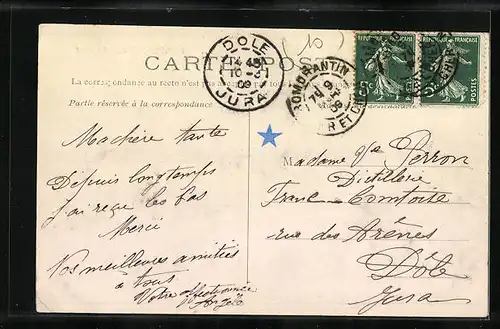 CARTE POST
La correspondance au recto n'est pas
Partie réservée à la correspondance
DOLE
14 45
10 - 3
09
JURA
ROMORANTIN
9
09
R ET CH
RÉPUBLIQUE FRANÇAISE
5c
POSTES
Ma chère tante
Depuis longtemps
j'ai reçu les bas
Merci
Nos meilleures amitiés
à tous
Votre affectionnée
Angèle
M
Madame Vve Perron
Distillerie
Franc-Comtoise
rue des Arènes
Dôle
Jura